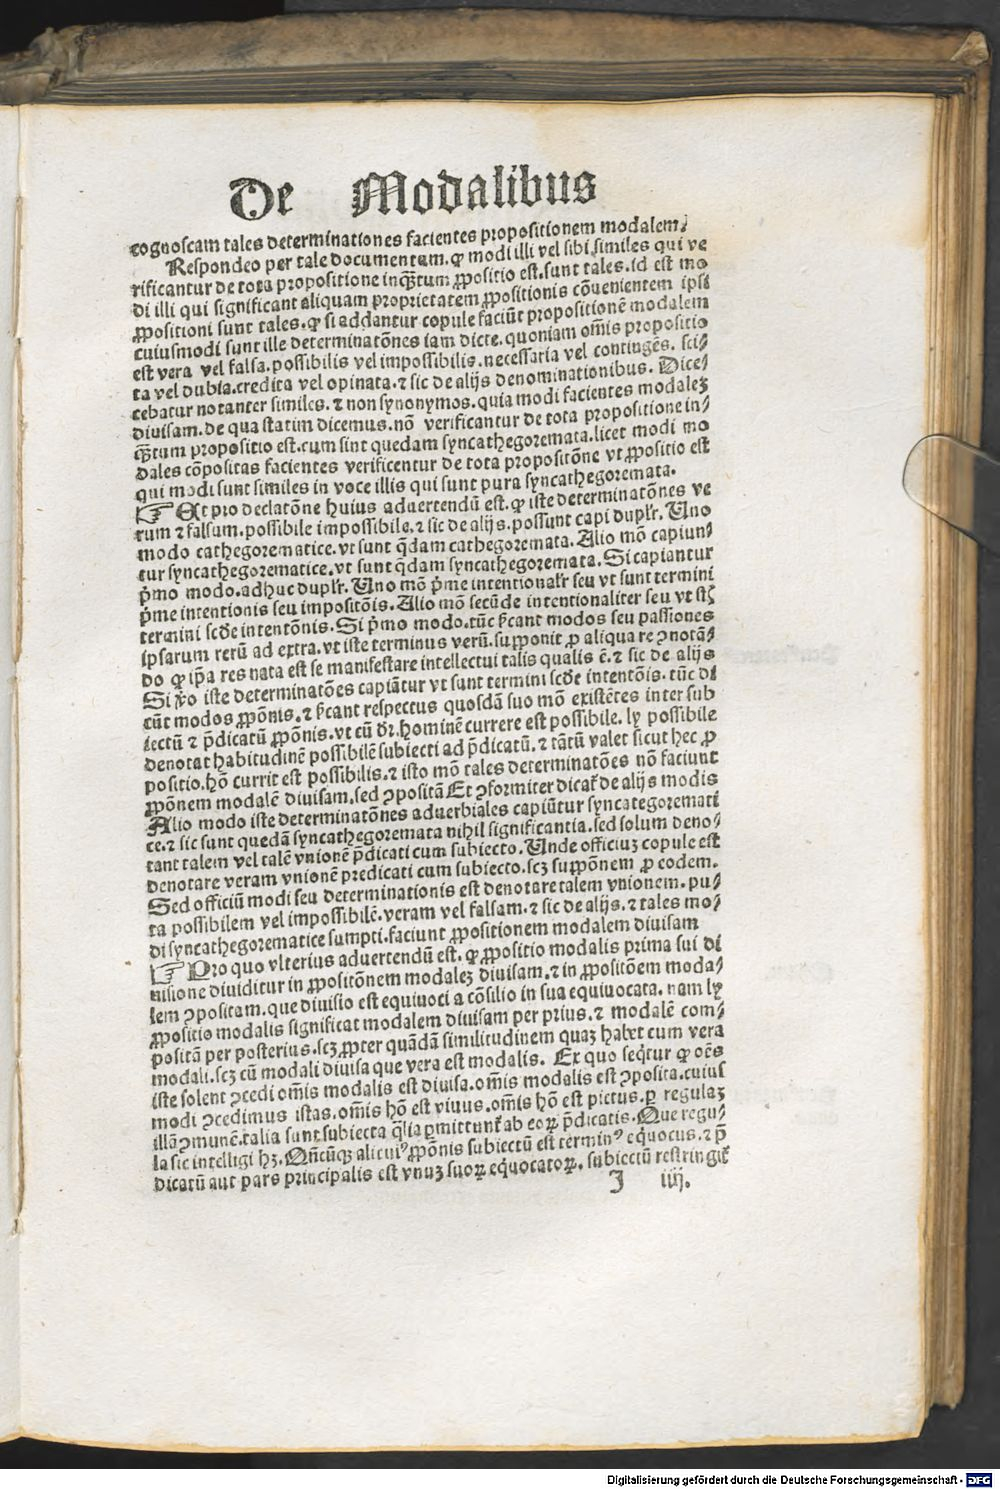 De Modalibus
cognoscam tales determinationes facientes propositionem modalem/
Respondeo per tale documentum. ꝙ modi illi vel sibi similes qui ve
rificantur de tota propositione inqꝫtum ꝓpositio est. sunt tales. id est mo
di illi qui significant aliquam proprietatem ꝓpositionis cõuenientem ipsi
ꝓpositioni sunt tales. ꝙ si addantur copule faciũt propositionẽ modalem
cuiusmodi sunt ille determinatõnes iam dicte. quoniam om̃is propositio
est vera vel falsa. possibilis vel impossibilis. necessaria vel contingẽs. sci/
ta vel dubia. credita vel opinata. ⁊ sic de alijs denominationibus. Dice/
cebatur notanter similes. ⁊ non synonymos. quia modi facientes modaleꝫ
diuisam. de qua statim dicemus. nõ verificantur de tota propositione in/
qꝫtum propositio est. cum sint quedam syncathegoremata. licet modi mo
dales cõpositas facientes verificentur de tota propositõne vt ꝓpositio est
qui modi sunt similes in voce illis qui sunt pura syncathegoremata.
☞ Et pro declatõne huius aduertendũ est. ꝙ iste determinatõnes ve
rum ⁊ falsum. possibile impossibile. ⁊ sic de alijs. possunt capi duplr̃. Uno
modo cathegorematice. vt sunt q̃dam cathegoremata. Alio mõ capiun/
tur syncathegorematice. vt sunt q̃dam syncathegoremata. Si capiantur
p̃mo modo. adhuc duplr̃. Uno mõ p̃me intentionalr̃ seu vt sunt termini
p̃me intentionis seu impositõis. Alio mõ secũde intentionaliter seu vt st̃
termini scd̃e intentõnis. Si p̃mo modo. tũc s̃cant modos seu passiones
ipsarum rerũ ad extra. vt iste terminus verũ. supponit ꝓ aliqua re ꝯnotã/
do ꝙ ip̃a res nata est se manifestare intellectui talis qualis ẽ. ⁊ sic de alijs
Si ṽo iste determinatões capiãtur vt sunt termini scd̃e intentõis. tũc di
cũt modos ꝓpõnis. ⁊ s̃cant respectus quosdã suo mõ existẽtes inter sub
iectũ ⁊ p̃dicatũ ꝓpõnis. vt cũ dr̃. hominẽ currere est possibile. ly possibile
denotat habitudinẽ possibilẽ subiecti ad p̃dicatũ. ⁊ tãtũ valet sicut hec ꝓ
positio. hõ currit est possibilis. ⁊ isto mõ tales determinatões nõ faciunt
ꝓpõnem modalẽ diuisam. sed ꝯpositã Et ꝯformiter dicat̃ de alijs modis
Alio modo iste determinatõnes aduerbiales capiũtur syncategoremati
ce. ⁊ sic sunt quedã syncathegoremata nihil significantia. sed solum deno/
tant talem vel talẽ vnionẽ p̃dicati cum subiecto. Unde officiuꝫ copule est
denotare veram vnionẽ predicati cum subiecto. scꝫ suppõnem ꝓ eodem.
Sed officiũ modi seu determinationis est denotare talem vnionem. pu/
ta possibilem vel impossibilẽ. veram vel falsam. ⁊ sic de alijs. ⁊ tales mo/
di syncathegorematice sumpti. faciunt ꝓpositionem modalem diuisam
☞ Pro quo vlterius aduertendũ est. ꝙ ꝓpositio modalis prima sui di
uisione diuiditur in ꝓpositõnem modaleꝫ diuisam. ⁊ in ꝓpositõem moda/
lem ꝯpositam. que diuisio est equiuoci a cõsilio in sua equiuocata. nam ly
ꝓpositio modalis significat modalem diuisam per prius. ⁊ modalẽ com/
positã per posterius. scꝫ ꝓpter quãdã similitudinem quaꝫ habet cum vera
modali. scꝫ cũ modali diuisa que vera est modalis. Ex quo seq̃tur ꝙ oẽs
iste solent ꝯcedi om̃is modalis est diuisa. om̃is modalis est ꝯposita. cuius
modi ꝯcedimus istas. om̃is hõ est viuus. om̃is hõ est pictus. ꝑ regulaꝫ
illã ꝯmunẽ. talia sunt subiecta q̃lia ꝑmittunt̃ ab eoꝝ p̃dicatis. Que regu/
la sic intelligi hꝫ. Qñcũqꝫ alicuiꝰ ꝓpõnis subiectũ est terminꝰ eq̃uocus. ⁊ p̃
dicatũ aut pars principalis est vnuꝫ suoꝝ eq̃uocatoꝝ. subiectũ restringit̃
I iiij.
Digitalisierung gefördert durch die Deutsche Forschungsgemeinschaft - DFG